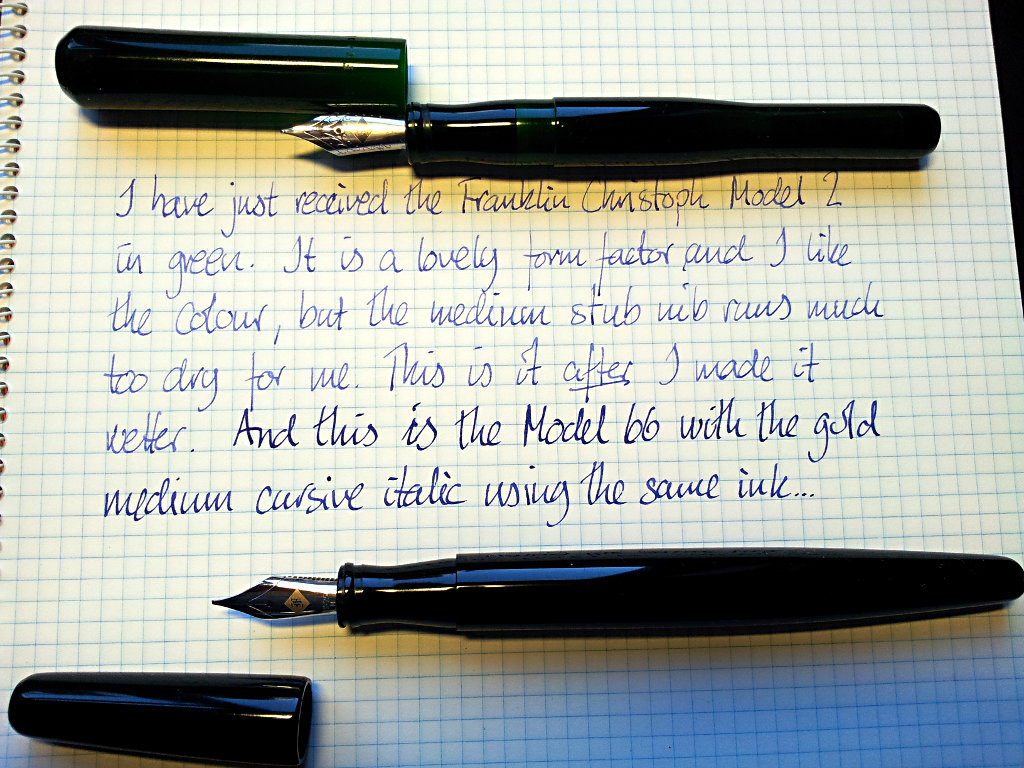 I have just received the Franklin Christoph Model 2
in green. It is a lovely form factor, and I like
the colour, but the medium stub nib runs much
too dry for me. This is it after I made it
wetter. And this is the Model 66 with the gold
medium cursive italic using the same ink...